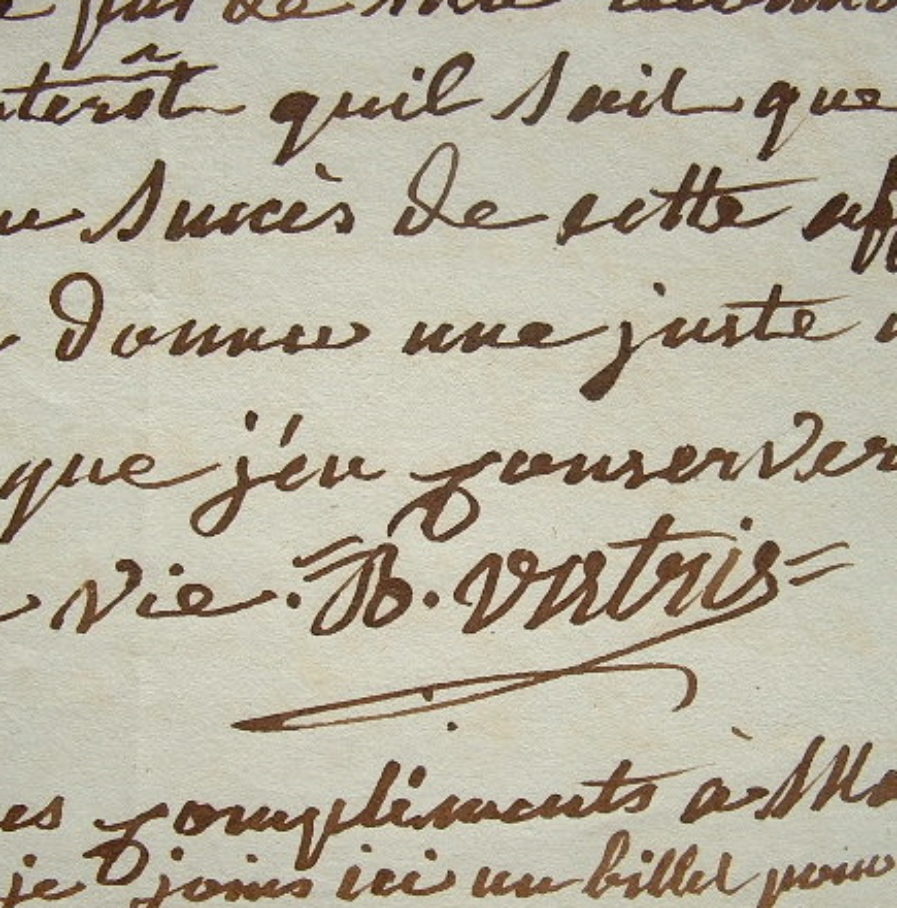 pas de
quil sait que
succès de cette
donner une juste
que j'en conserver
vie. = B. Vestris =
compliments à
je joins ici un billet pour